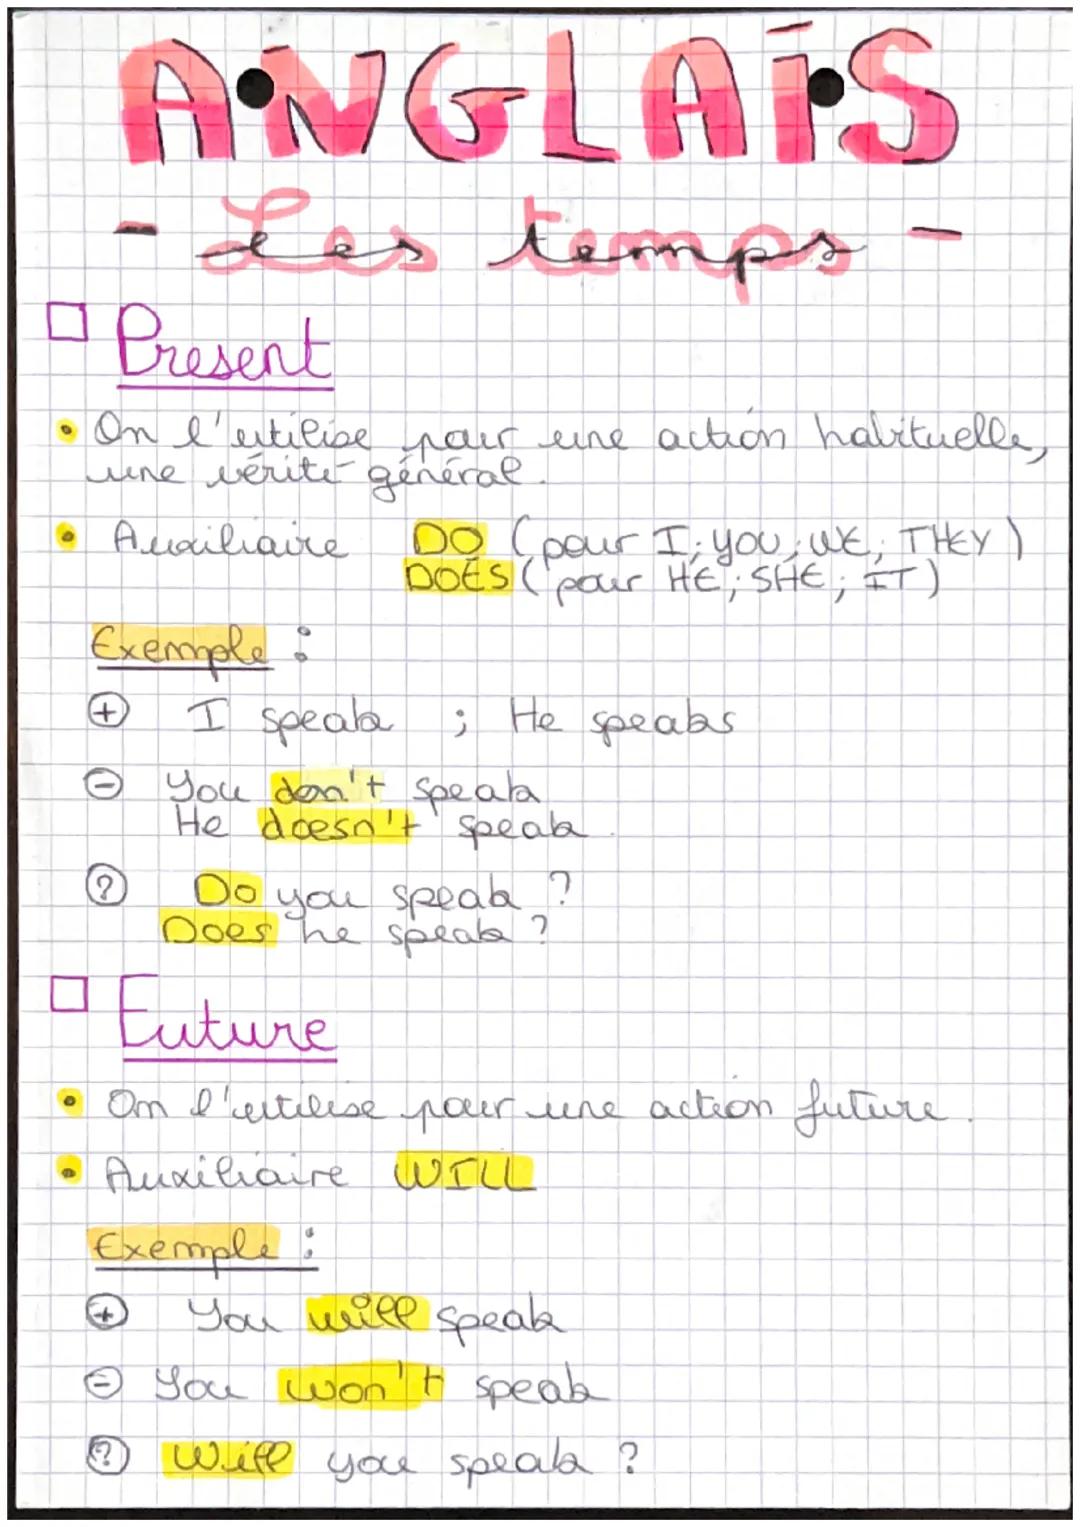 ANGLAIS
- Les temps -
Present
On l'utilise pour une action habituelle,
une vérité général.
Auxiliaire DO (pour I; YOU; WE; THEY)
DOES (pour HE; SHE; IT)
Exemple :
+ I speak ; He speaks
- You don't speak
He doesn't speak
? Do you speak ?
Does he speak ?
Future
On l'utilise pour une action future.
Auxiliaire WILL
Exemple :
+ You will speak
- You won't speak
? Will you speak ?